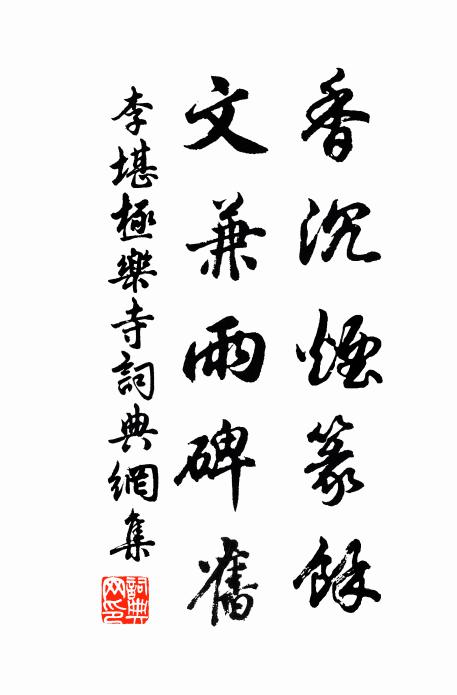 香沉煙篆餘
文兼雨碑舊
李堪極樂寺詞典網集
詞典網印